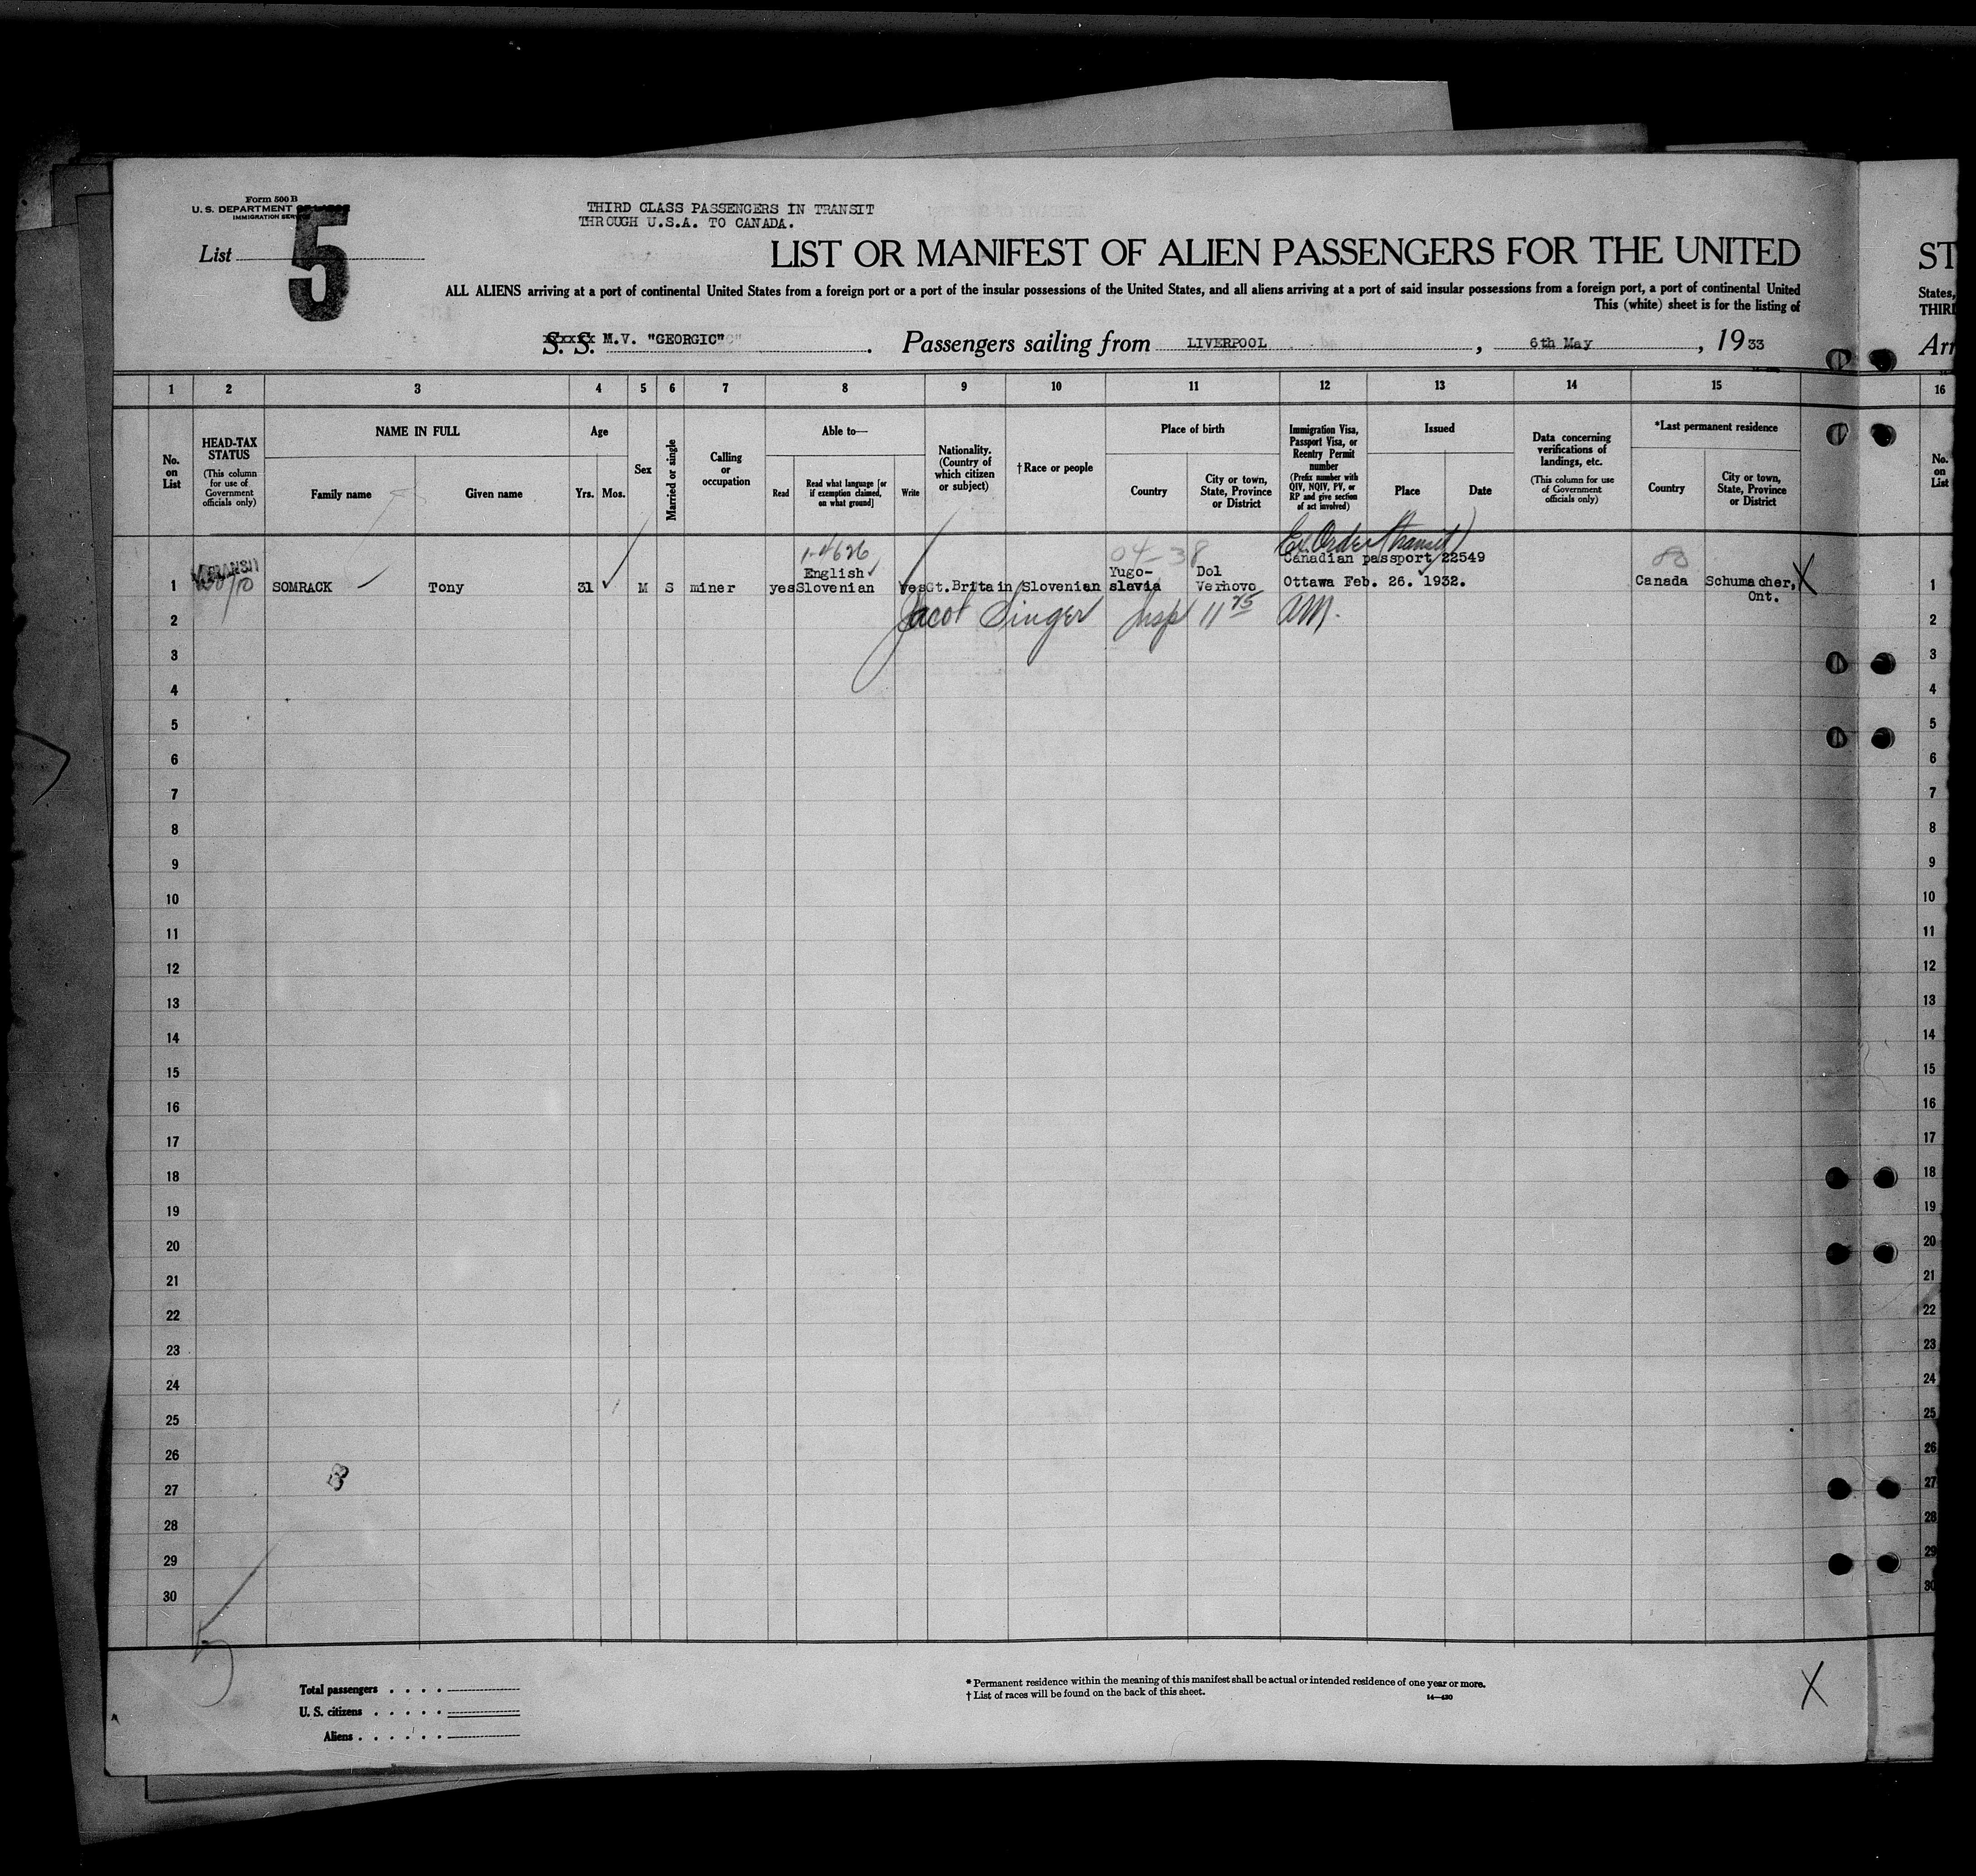 Form 500 B
U. S. DEPARTMENT OF LABOR
IMMIGRATION SERVICE
THIRD CLASS PASSENGERS IN TRANSIT
THROUGH U.S.A. TO CANADA.
List 5
LIST OR MANIFEST OF ALIEN PASSENGERS FOR THE UNITED
ST
ALL ALIENS arriving at a port of continental United States from a foreign port or a port of the insular possessions of the United States, and all aliens arriving at a port of said insular possessions from a foreign port, a port of continental United
States,
This (white) sheet is for the listing of
S. S. M.V. "GEORGIC" . Passengers sailing from LIVERPOOL , 6th May , 1933
1 2 3 4 5 6 7 8 9 10 11 12 13 14 15 16
No. on List
HEAD-TAX STATUS
(This column for use of Government officials only)
NAME IN FULL
Family name
Given name
Age
Yrs. Mos.
Sex
Married or single
Calling or occupation
Able to—
Read
Read what language [or if exemption claimed, on what ground]
Write
Nationality. (Country of which citizen or subject)
† Race or people
Place of birth
Country
City or town, State, Province or District
Immigration Visa, Passport Visa, or Reentry Permit number
(Prefix number with QIV, NQIV, PV, or RP and give section of act involved)
Issued
Place
Date
Data concerning verifications of landings, etc.
(This column for use of Government officials only)
*Last permanent residence
Country
City or town, State, Province or District
No. on List
TRANSIT
04-38
Ex. Order (transit)
English
Yugo-
Dol
Canadian passport 22549
1 SOMRACK Tony 31 M S miner yes Slovenian Yes Gt.Britain Slovenian slavia Verhovo Ottawa Feb. 26. 1932. Canada Schumacher, X 1
Ont.
2 Jacob Singer Insp 11 75 AM. 2
3 3
4 4
5 5
6 6
7 7
8 8
9 9
10 10
11 11
12 12
13 13
14 14
15 15
16 16
17 17
18 18
19 19
20 20
21 21
22 22
23 23
24 24
25 25
26 26
27 27
28 28
29 29
30 30
5
Total passengers
U. S. citizens
Aliens
* Permanent residence within the meaning of this manifest shall be actual or intended residence of one year or more.
† List of races will be found on the back of this sheet.
14—430
X